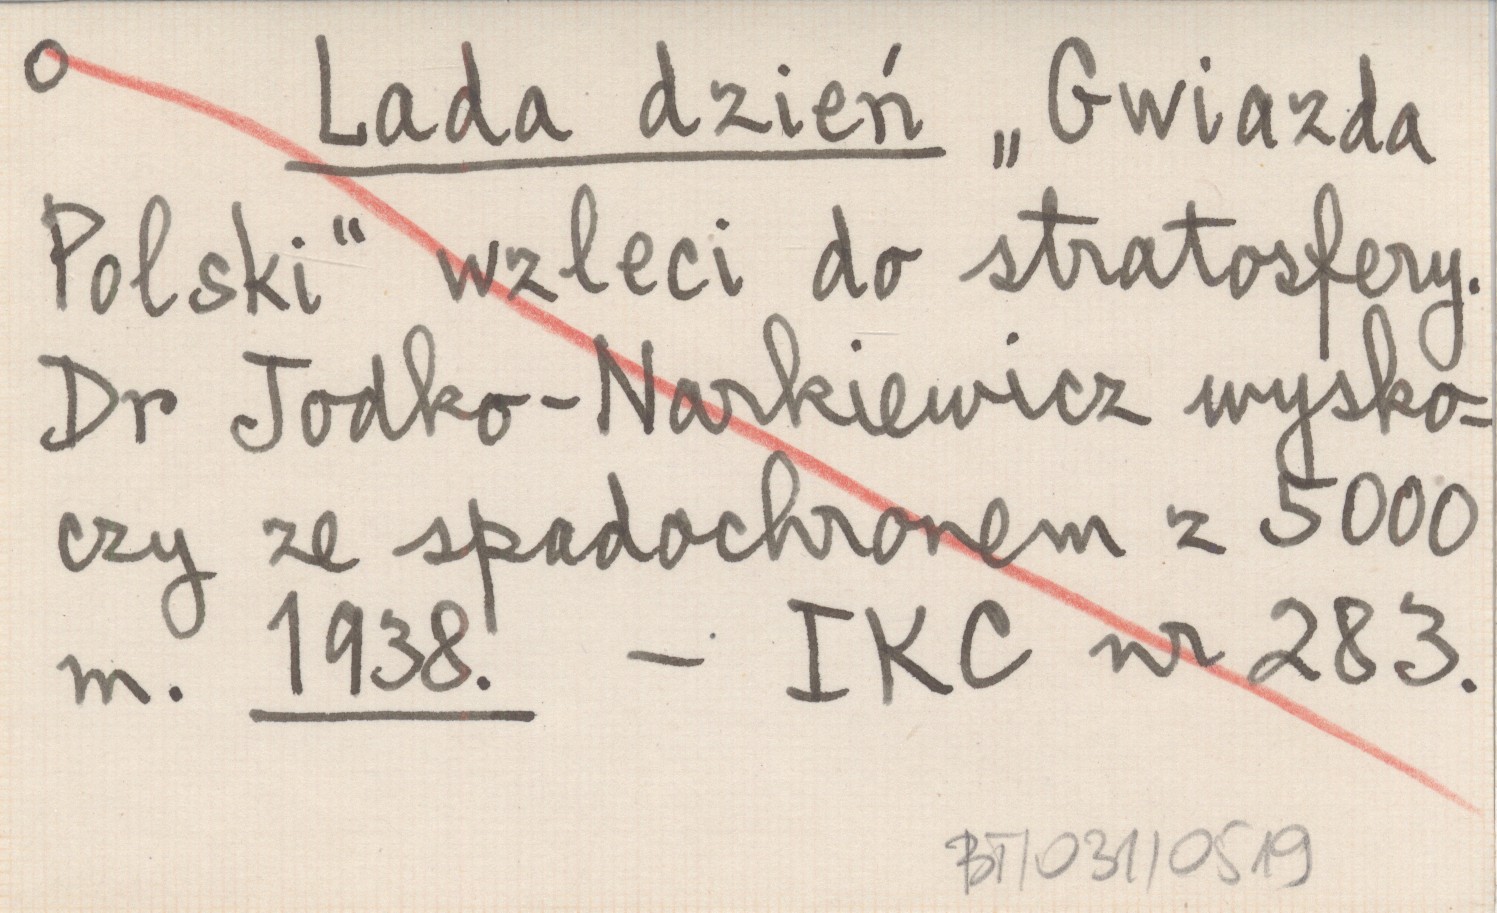 o Lada dzień „Gwiazda
Polski" wzleci do stratosfery.
Dr Jodko-Narkiewicz wysko=
czy ze spadochronem z 5000
m. 1938. - IKC nr 283.
BT/031/0519